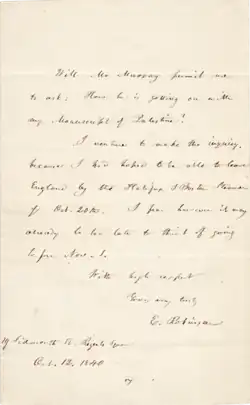 Will Mr. Murray permit me
to ask: How he is getting on with
my Manuscript of Palestine?
I venture to make this inquiry,
because I had hoped to be able to leave
England by the Halifax & Boston Steamer
of Oct. 20th. I fear however it may
already be too late to think of going
before Nov. 1.
With high respect
Yours very truly
E. Robinson
Sidmouth St. Regents Square
Oct. 12, 1840